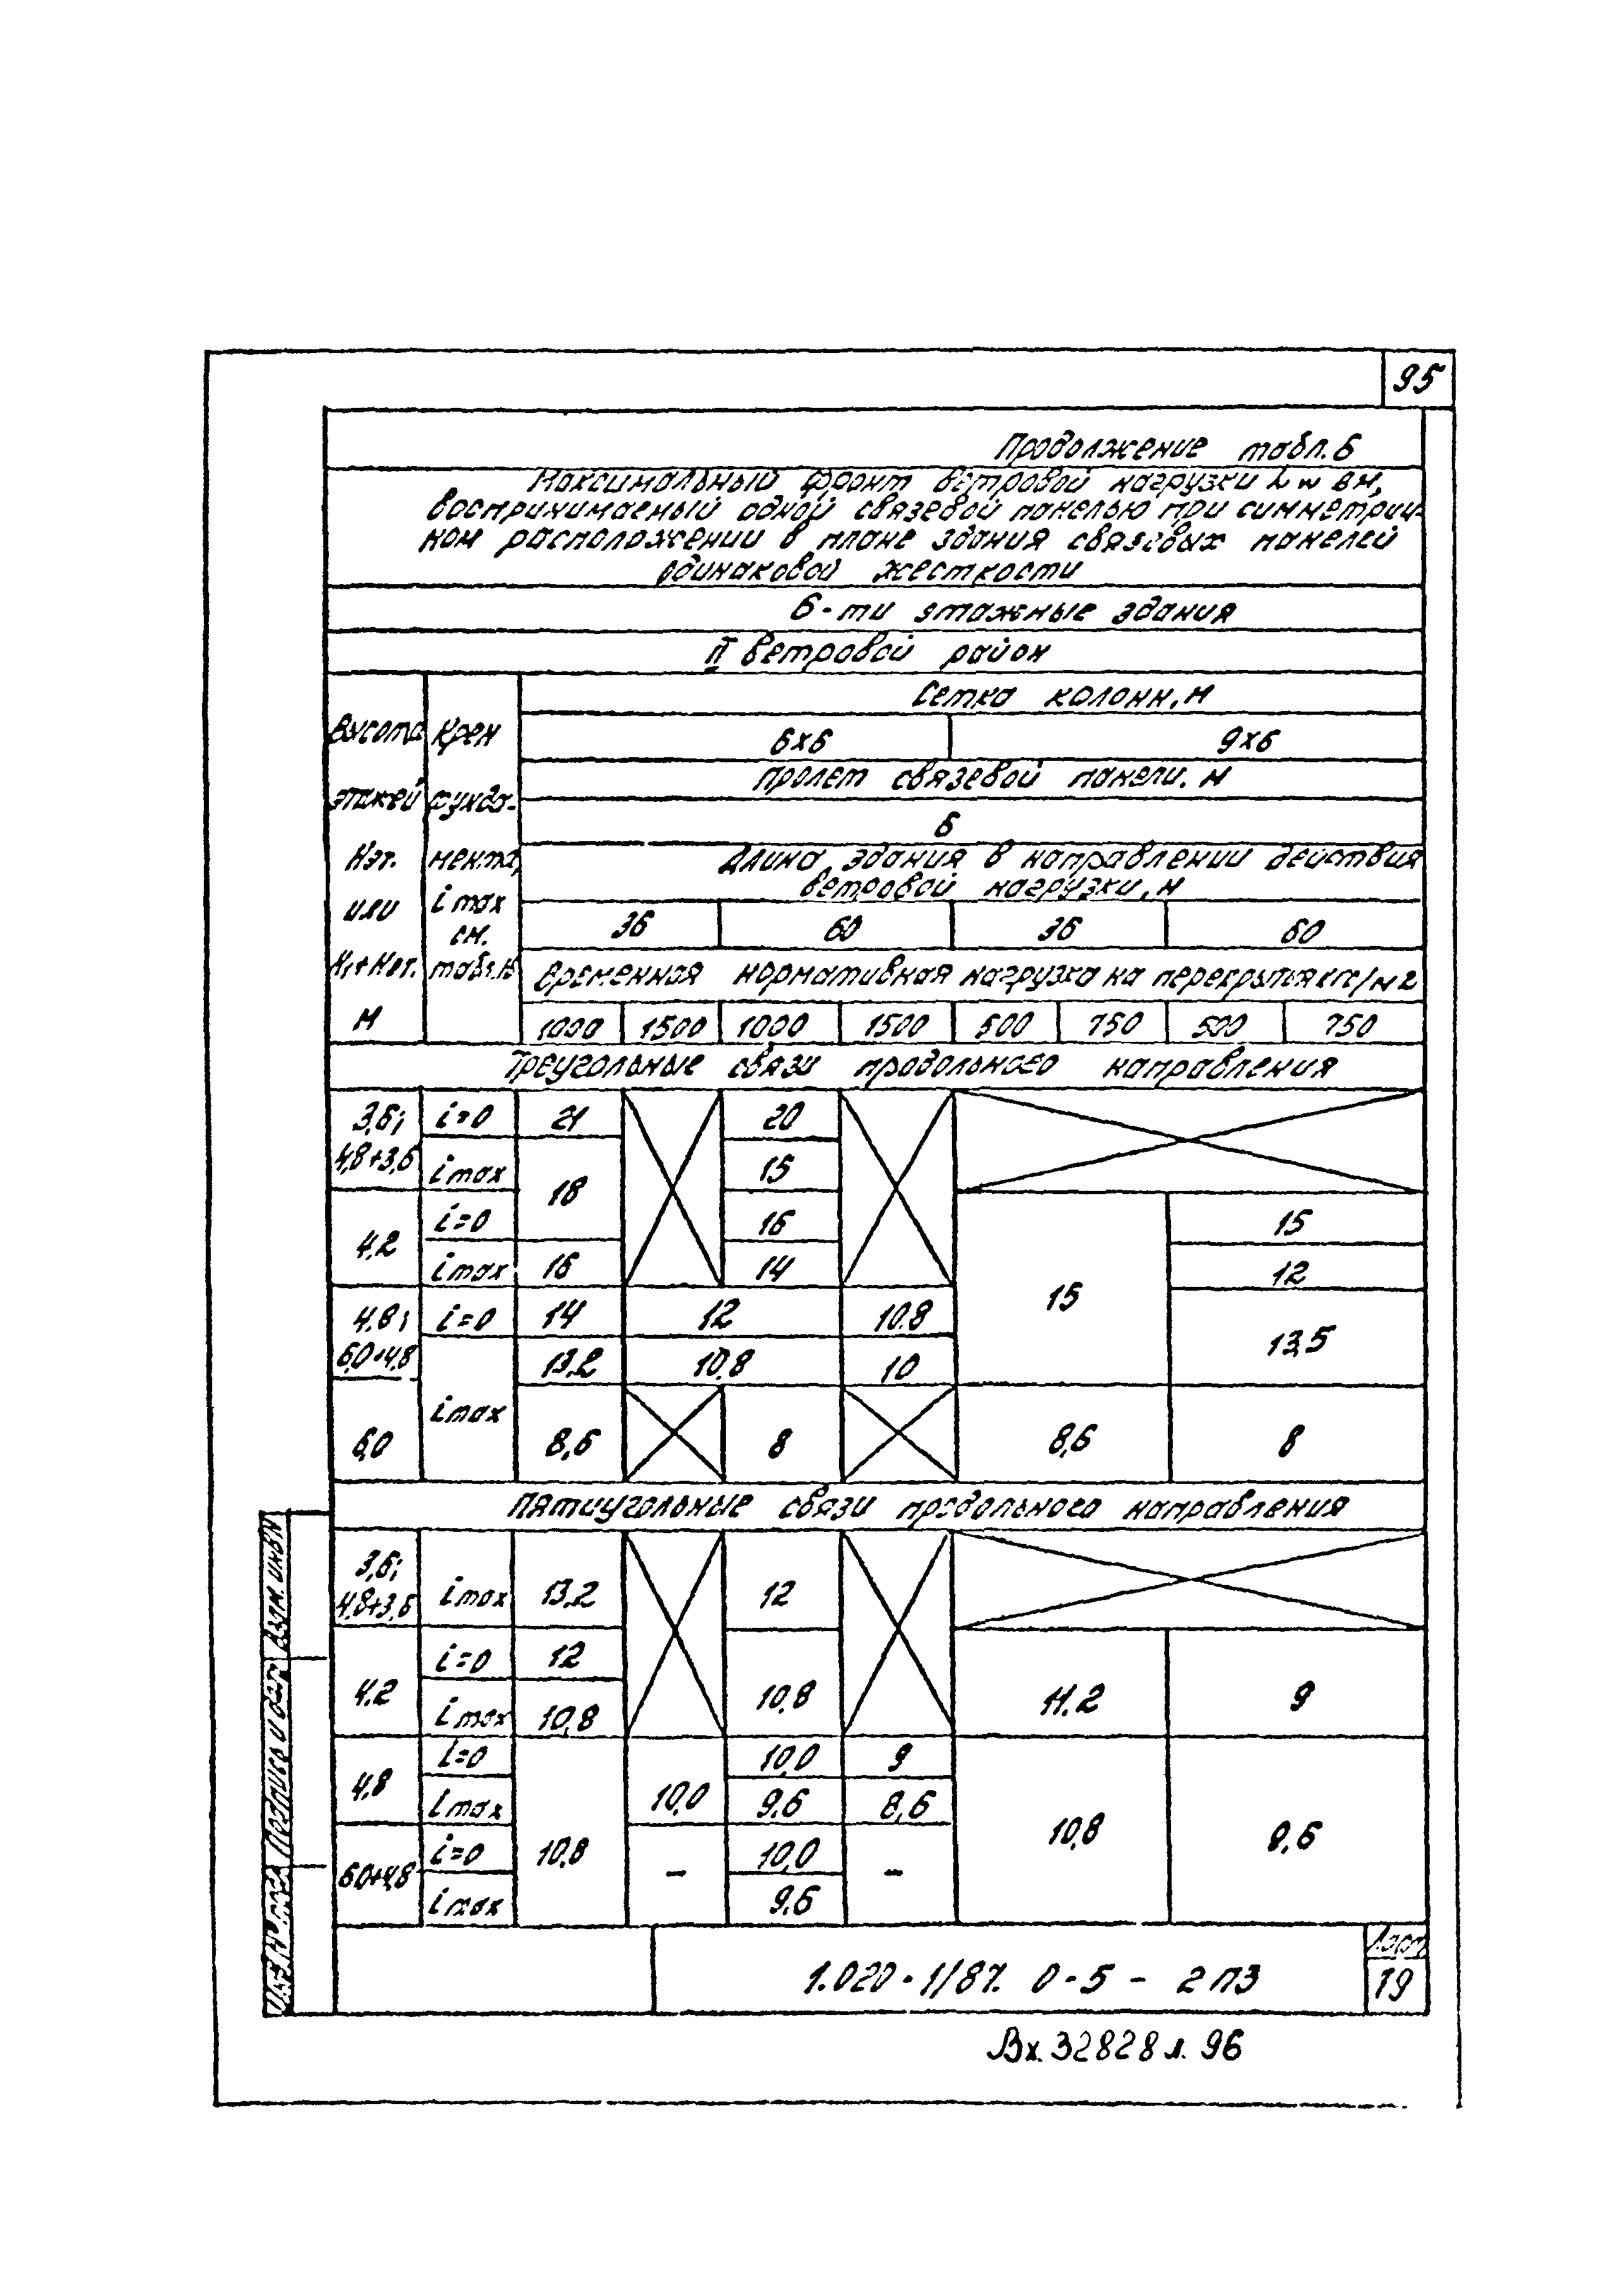 95
Продолжение табл. 6
Максимальный фронт ветровой нагрузки Lw в м,
воспринимаемый одной связевой панелью при симметрич-
ном расположении в плане здания связевых панелей
одинаковой жесткости
6-ти этажные здания
II ветровой район
Высота этажей Нэт. или Н1+Нэт. м
Крен фунда-мента, i max см. табл.
Сетка колонн, м
6х6 9х6
Пролет связевой панели, м
6
Длина здания в направлении действия
ветровой нагрузки, м
36 60 36 60
Временная нормативная нагрузка на перекрытия кгс/м2
1000 1500 1000 1500 500 750 500 750
Треугольные связи продольного направления
3,6; i=0 21 20
4,8+3,6 i max 18 15
4.2 i=0 16 15
i max 16 14 12
4.8; i=0 14 12 10.8 15 13,5
6,0+4,8 13.2 10,8 10
i max
6,0 8,6 8 8,6 8
Пятиугольные связи продольного направления
3,6;
4,8+3,6 i max 13.2 12
4.2 i=0 12
i max 10,8 10,8 11.2 9
4,8 i=0 10,0 9
i max 10,0 9.6 8,6
10,8 10,8 9,6
6,0+4,8 i=0 - 10,0 -
i max 9.6
Взам. инв.№
Подпись и дата
Инв.№ подл.
1.020-1/87. 0-5 - 2 ПЗ
Лист
19
Вх. 32828 л. 96